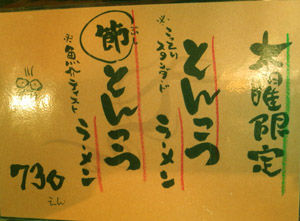 木曜限定
※こってりスタンダード
とんこつ
ラーメン
節
ぶし
とんこつ
※魚介テイスト
ラーメン
730
えん